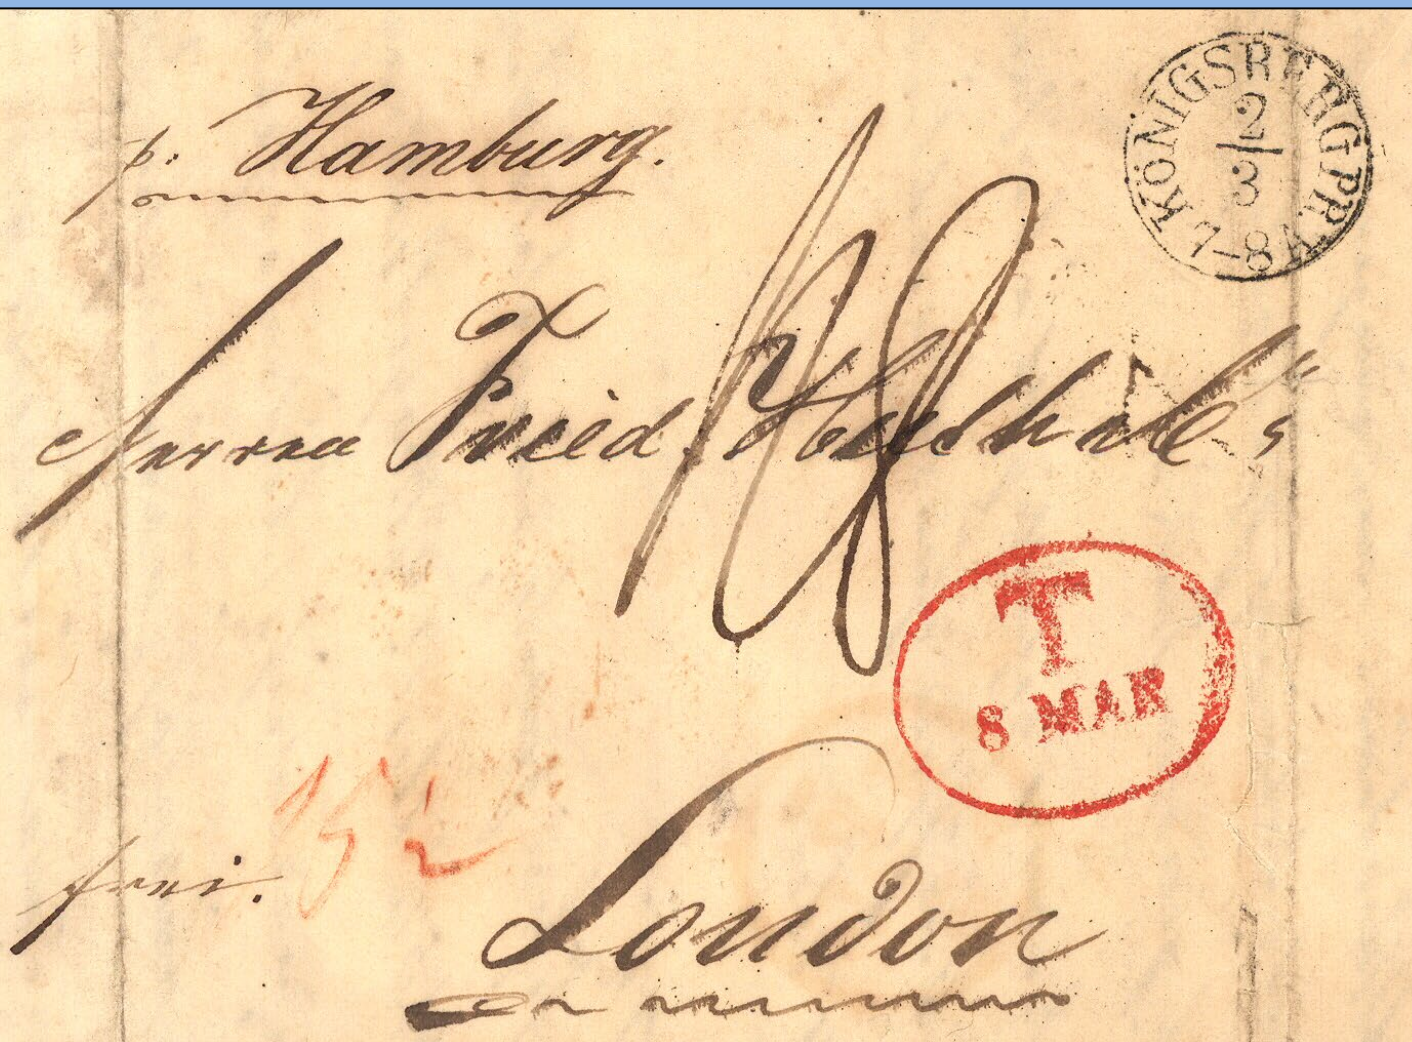 p. Hamburg.
KÖNIGSBERG PR.
2/3
7-8
Herren Fried.
T
8 MAR
frei.
London